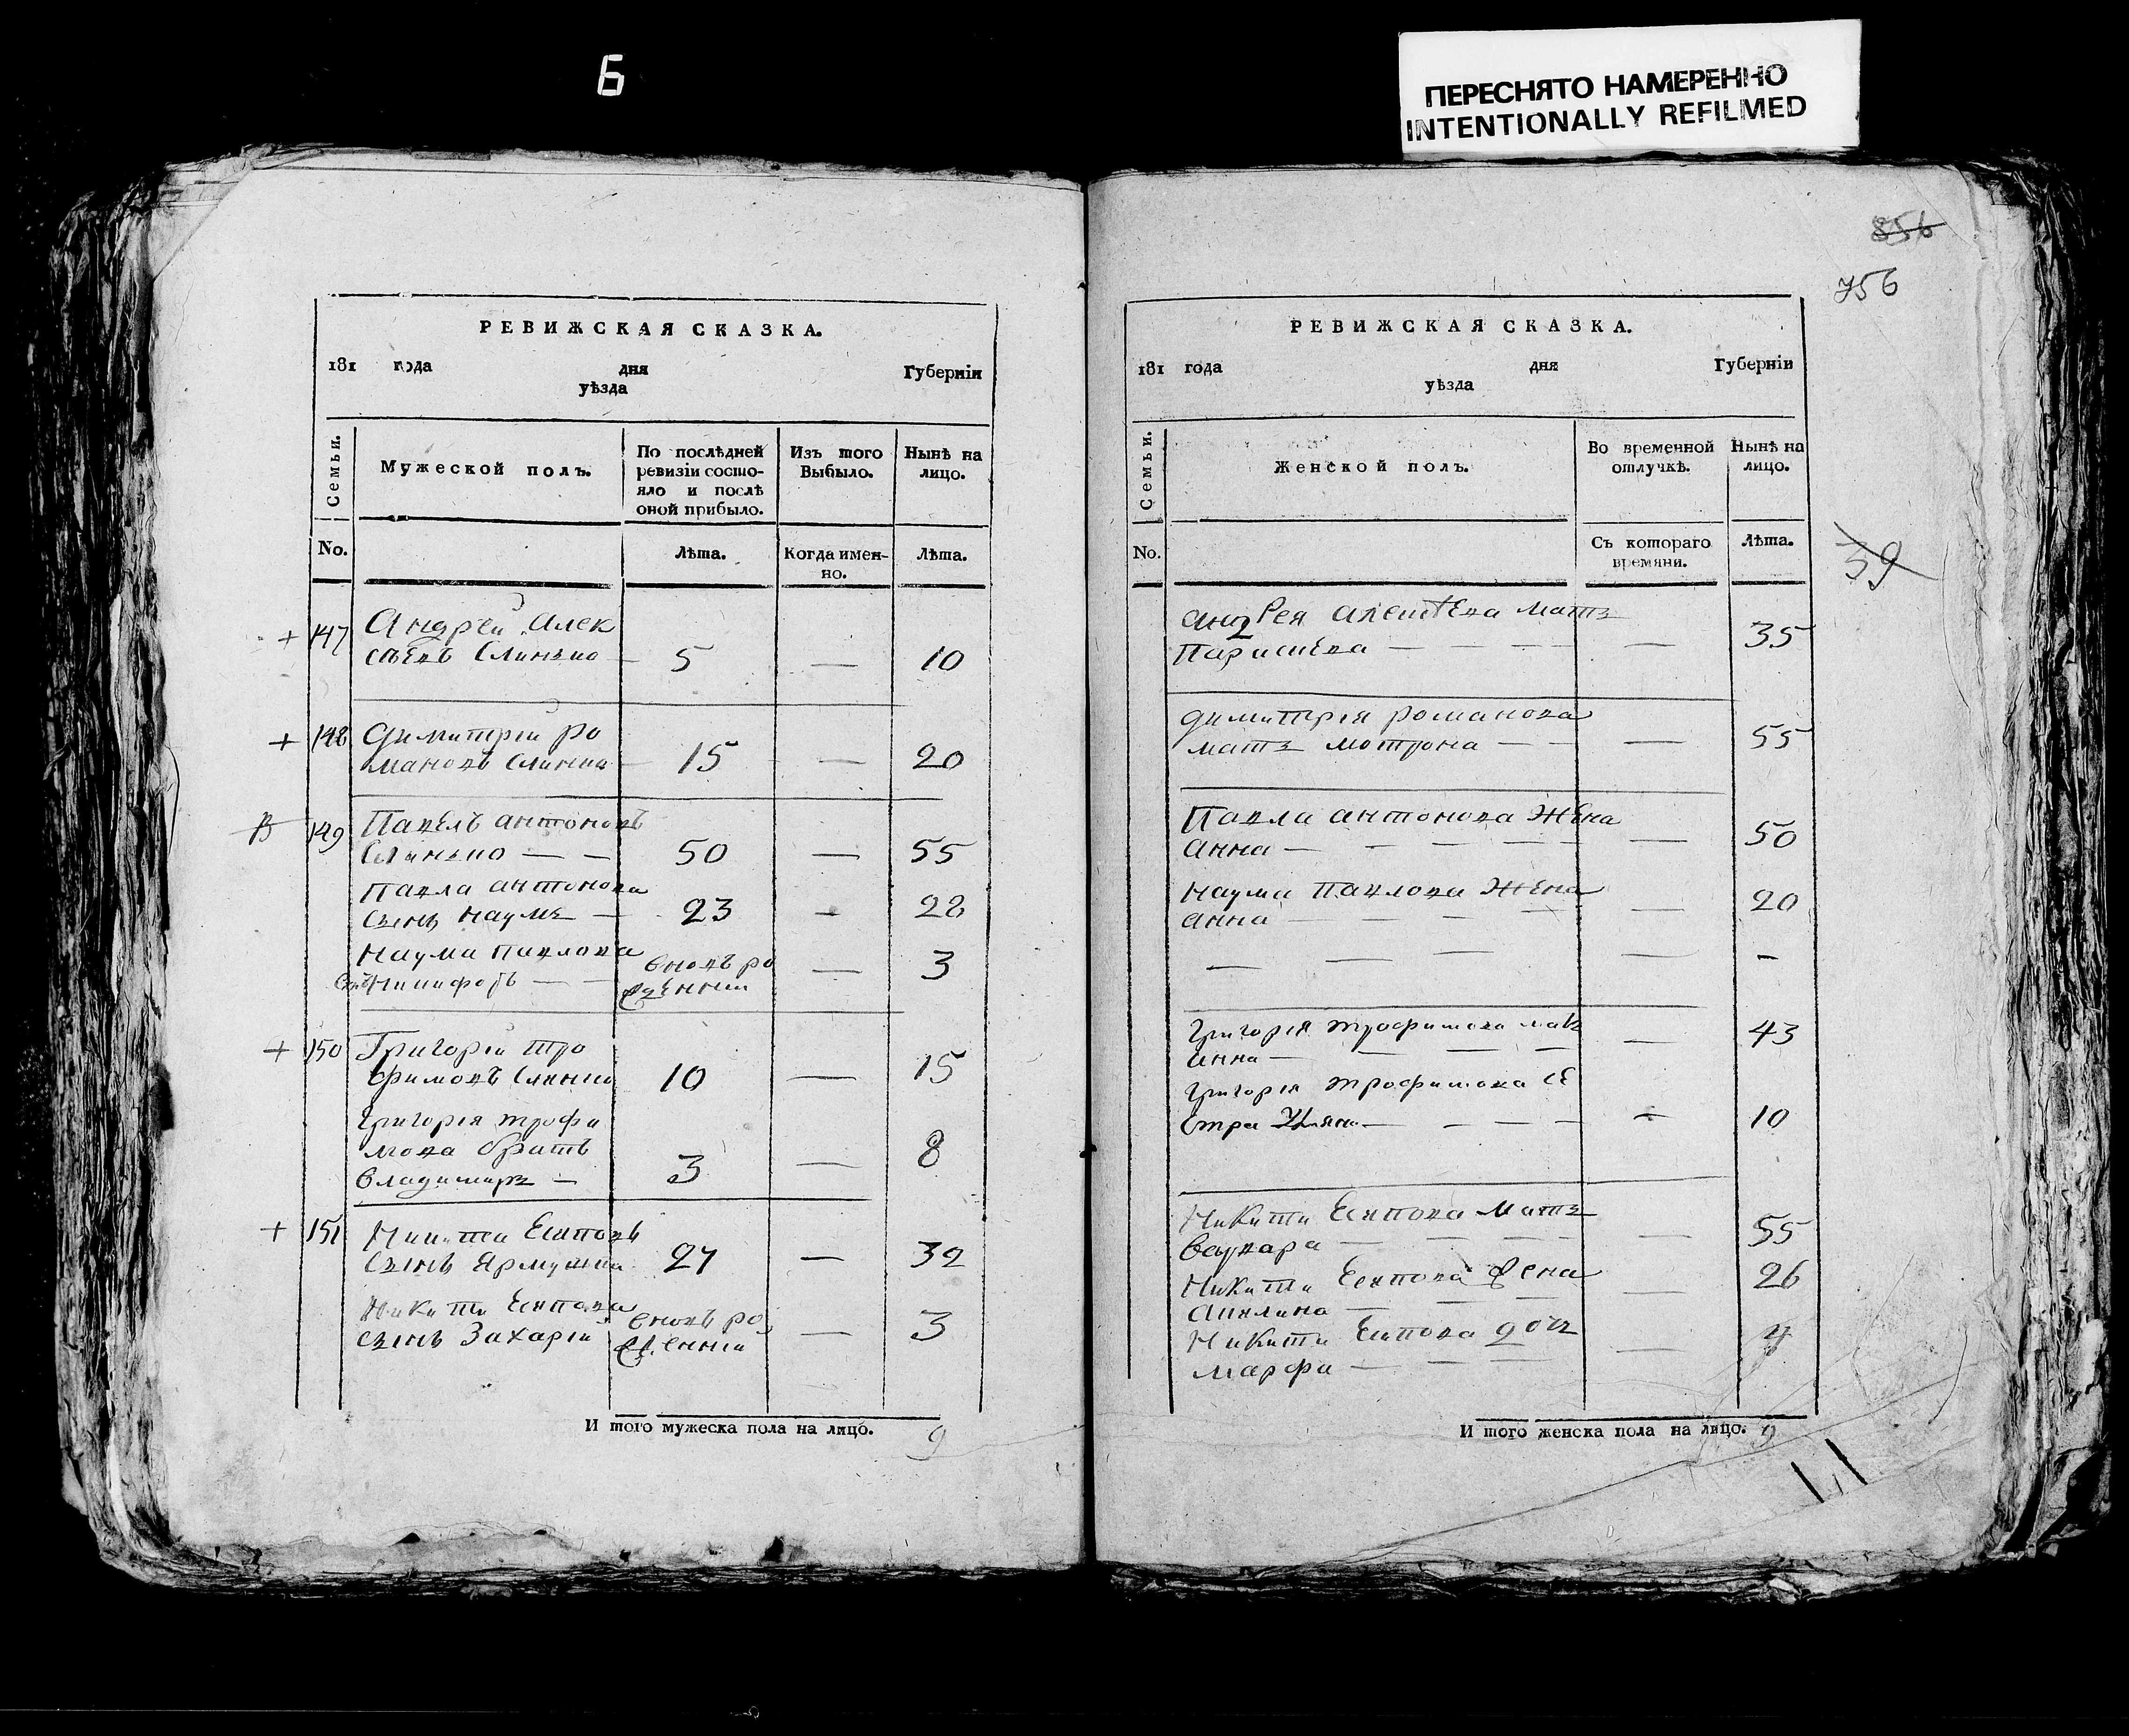 6
ПЕРЕСНЯТО НАМЕРЕННО
INTENTIONALLY REFILMED
РЕВИЖСКАЯ СКАЗКА.
181 года дня Губерніи
уѣзда
Семьи.
Мужеской полъ.
По послѣдней ревизіи состо-
яло и послѣ оной прибыло.
Изъ того Выбыло.
Нынѣ на лицо.
No.
Лѣта.
Когда имен-
но.
Лѣта.
147 Андреи Алек
сѣевъ 5 — 10
148 Димитріи Ро
мановъ 15 — 20
149 Павелъ антоновъ
— — 50 — 55
Павла антонова
сынъ наумъ — 23 — 28
Наума павлова
Никифоръ — — вновь ро
жденныи — 3
150 Григоріи тро
фимовъ 10 — 15
Григорія трофи
мова братъ
владимиръ — 3 — 8
151 Никита Есиповъ
сынъ 27 — 32
Никиты Есипова
сынъ Захаріи вновь ро
жденныи — 3
И того мужеска пола на лицо. 9
856
756
39
РЕВИЖСКАЯ СКАЗКА.
181 года дня Губерніи
уѣзда
Семьи.
Женской полъ.
Во временной отлучкѣ.
Нынѣ на лицо.
No.
Съ котораго времяни.
Лѣта.
андрея алексѣева мать
— — — — 35
димитрія романова
мать мотрона — — — 55
Павла антонова жена
анна — — — — — 50
наума павлова жена
анна — — — — 20
— — — — -
григорія трофимова мать
анна — — — — 43
григорія трофимова се
стра — — — — 10
Никиты Есипова мать
— — — — 55
Никиты Есипова жена
— — — — 26
Никиты Есипова дочь
марфа — — — —
И того женска пола на лицо. 9